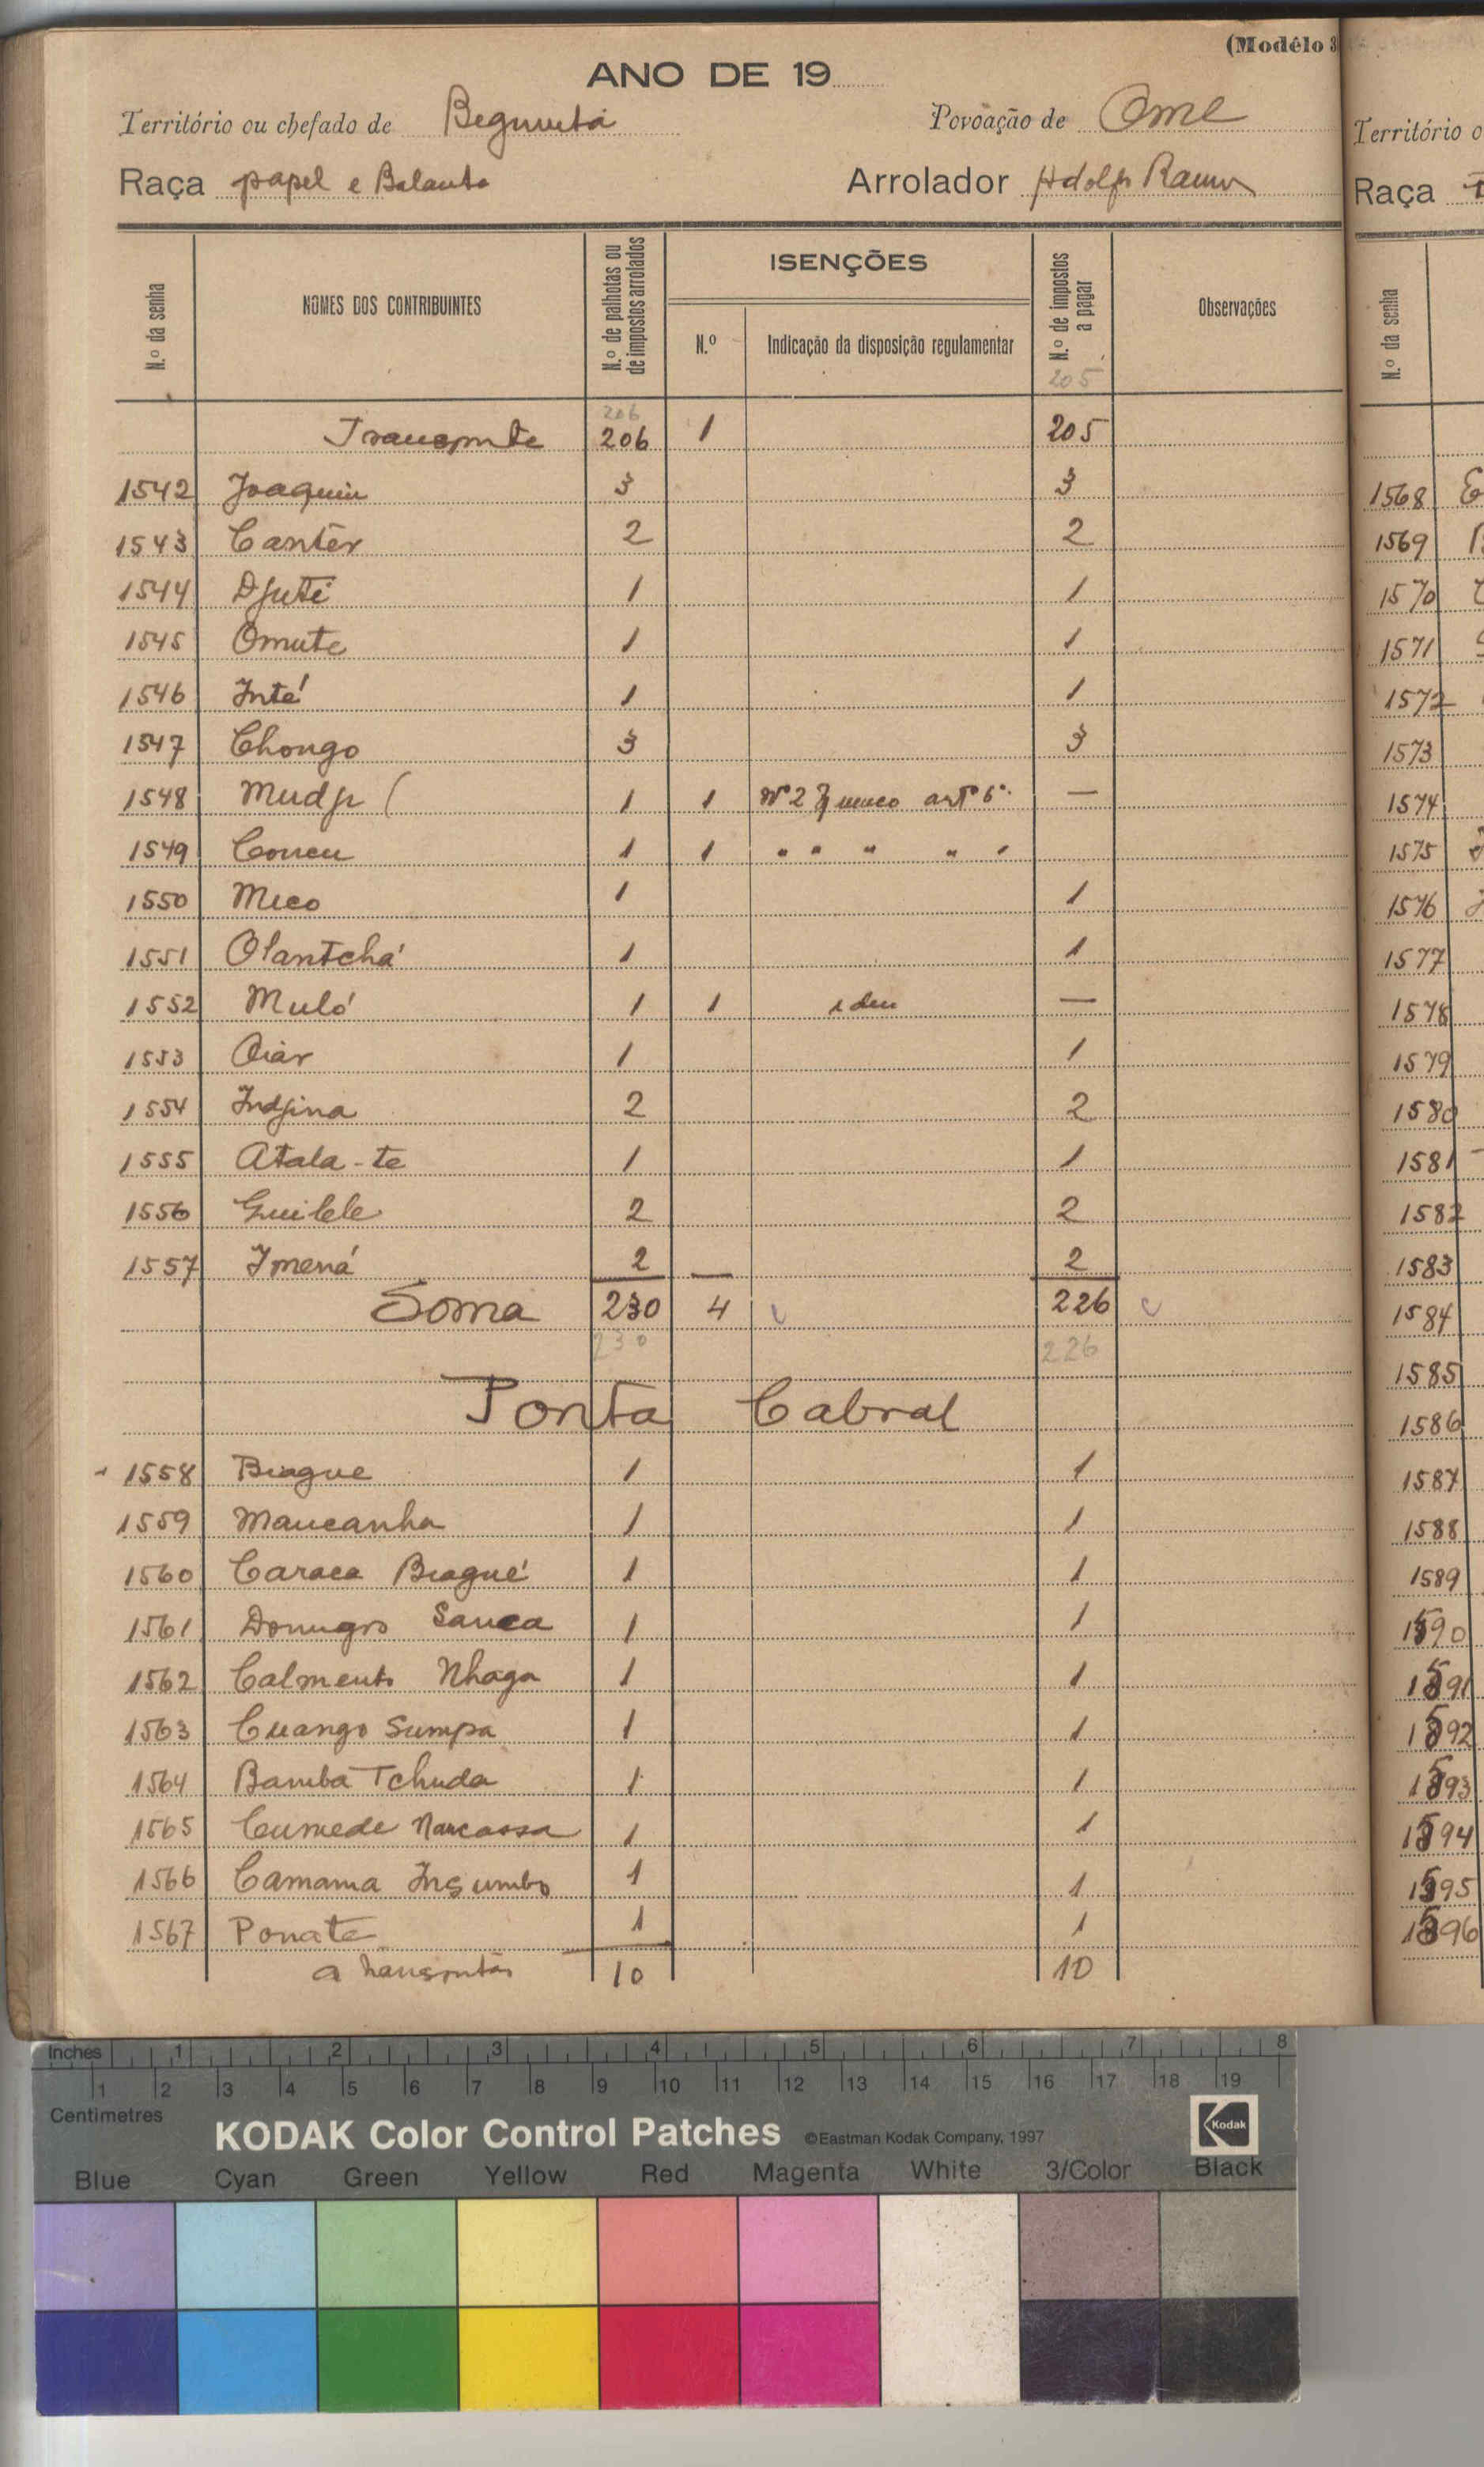 (Modêlo 3
ANO DE 19
Território ou chefado de Povoação de Ome
Raça papel e Balanta Arrolador Adolfo Ramos
N.º da senha NOMES DOS CONTRIBUINTES N.º de palhotas ou de impostos arrolados ISENÇÕES N.º Indicação da disposição regulamentar N.º de impostos a pagar Observações
206 205
Transporte 206 1 205
1542 Joaquim 3 3
1543 Cantér 2 2
1544 Djuti 1 1
1545 Omute 1 1
1546 Inté 1 1
1547 Chongo 3 3
1548 Mudjo ( 1 1 Nº 2 § unico artº 6º —
1549 1 1 " " " " "
1550 Mico 1 1
1551 Olantchá 1 1
1552 Muló 1 1 idem —
1553 Oiar 1 1
1554 Indjina 2 2
1555 Atala-te 1 1
1556 Guilele 2 2
1557 Imená 2 2
Soma 230 4 226
230 226
Ponta Cabral
1558 Biague 1 1
1559 Mancanha 1 1
1560 Caraca Biagué 1 1
1561 Domingos Sanca 1 1
1562 Calmento Nhaga 1 1
1563 Cuango Sumpa 1 1
1564 Bamba Tchuda 1 1
1565 Cumede Nancassa 1 1
1566 Camama Insumbo 1 1
1567 Ponate 1 1
a transportar 10 10
Território o
Raça
N.º da senha
1568
1569
1570
1571
1572
1573
1574
1575
1576
1577
1578
1579
1580
1581
1582
1583
1584
1585
1586
1587
1588
1589
1590
1591
1592
1593
1594
1595
1596
Inches 1 2 3 4 5 6 7 8
1 2 3 4 5 6 7 8 9 10 11 12 13 14 15 16 17 18 19
Centimetres
KODAK Color Control Patches ©Eastman Kodak Company, 1997 Kodak
Blue Cyan Green Yellow Red Magenta White 3/Color Black